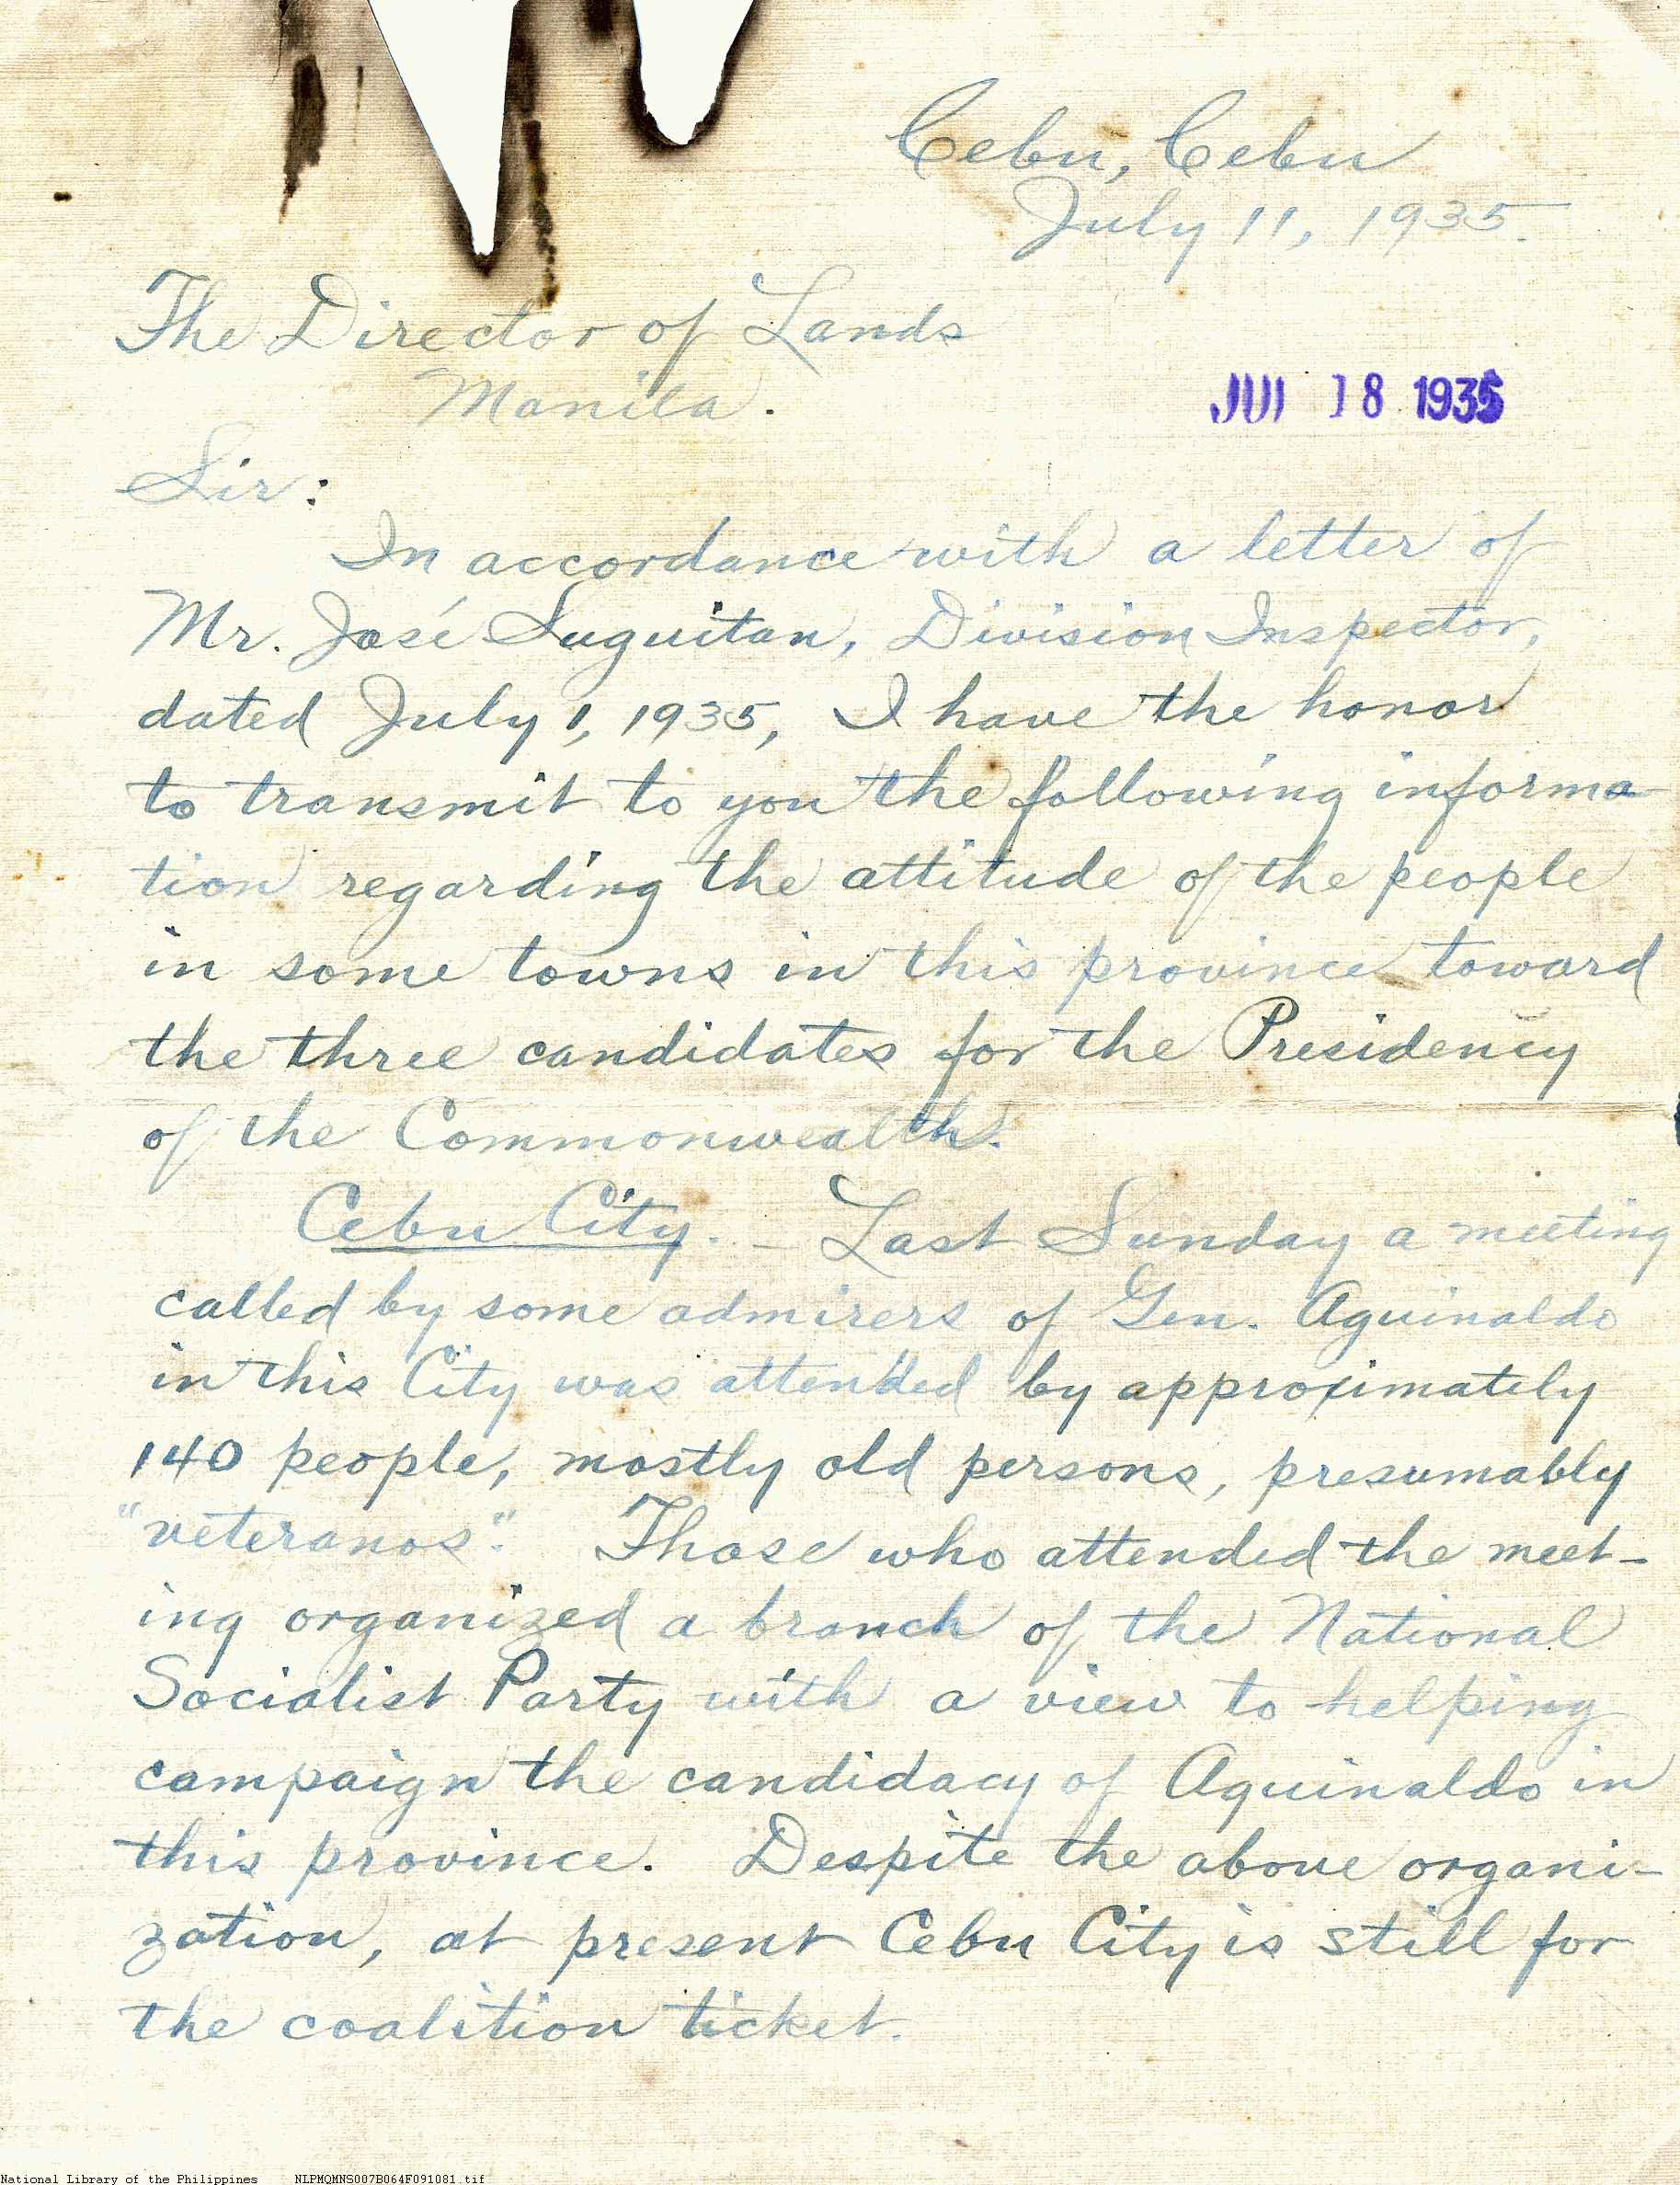 Cebu, Cebu
July 11, 1935.
The Director of Lands
Manila.
JUL 18 1935
Sir:
In accordance with a letter of
Mr. José Suguitan, Division Inspector,
dated July 1, 1935, I have the honor
to transmit to you the following informa-
tion regarding the attitude of the people
in some towns in this province toward
the three candidates for the Presidency
of the Commonwealth.
Cebu City. - Last Sunday a meeting
called by some admirers of Gen. Aguinaldo
in this City was attended by approximately
140 people, mostly old persons, presumably
"veteranos". Those who attended the meet-
ing organized a branch of the National
Socialist Party with a view to helping
campaign the candidacy of Aguinaldo in
this province. Despite the above organi-
zation, at present Cebu City is still for
the coalition ticket.
National Library of the Philippines NLPMQMNS007B064F091081.tif